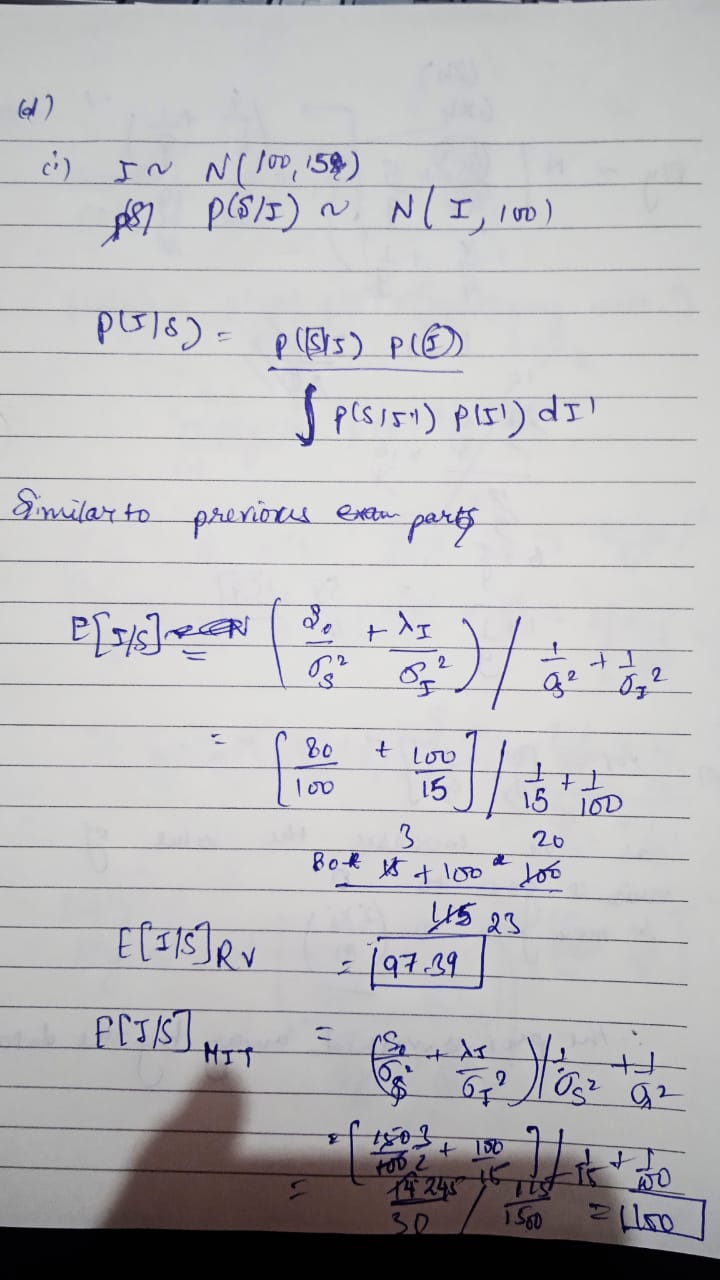 (d)
(i) I ~ N(100, 15)
P(S/I) ~ N(I, 100)
P(I/S) = P(S/I) P(I)
∫ P(S/I') P(I') dI'
Similar to previous parts
E[I/S] = ( S₀/σS² + λI/σI² ) / 1/σS² + 1/σI²
= [ 80/100 + 100/15 ] / 1/15 + 1/100
3 20
80* 15 + 100 * 100
115 23
E[I/S]RV = 97.39
E[I/S]MIT = ( S₀/σS² + λI/σI² ) / 1/σS² + 1/σI²
= [ 150 3/100 2 + 100/15 ] / 1/15 + 1/100
= 245/30 / 115/1500 = 1100